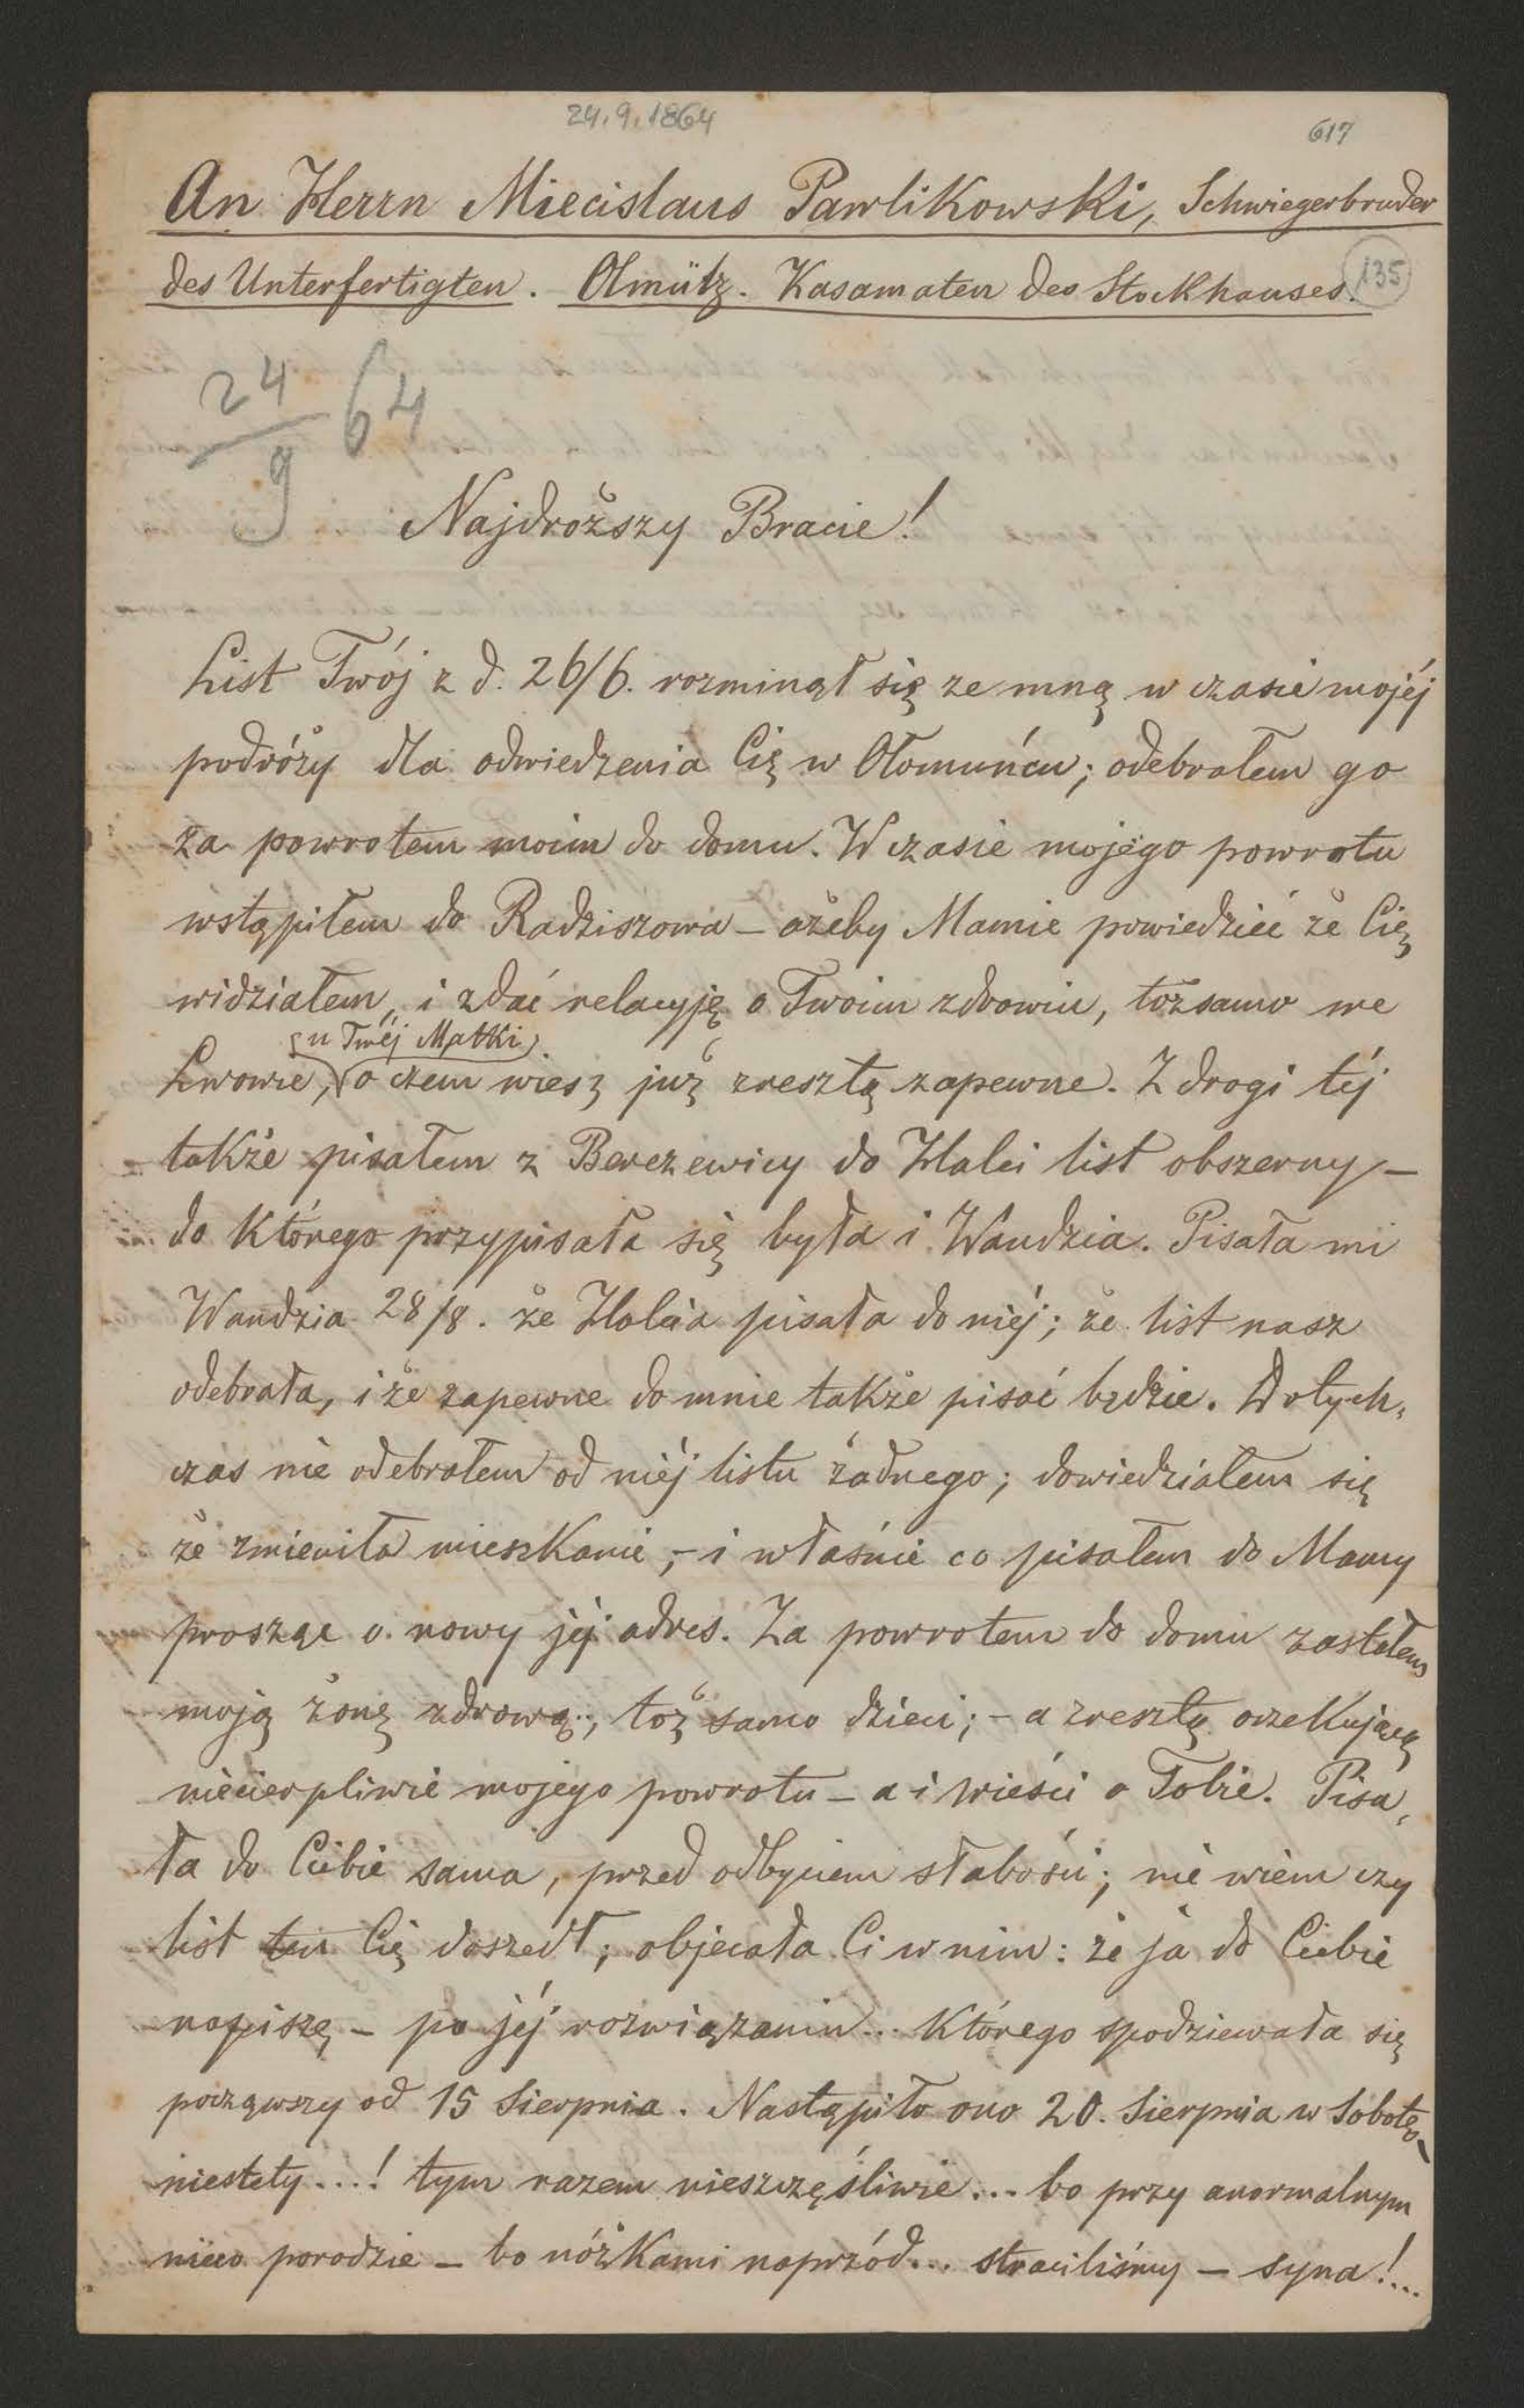 24.9.1864
617
An Herrn Miecislaus Pawlikowski, Schwiegerbruder
des Unterfertigten. Olmütz. Kasamaten des Stockhauses.
135
24/9 64
Najdroższy Bracie!
List Twój z d. 26/6. rozminął się ze mną w czasie mojéj
podróży dla odwiedzenia Cię w Ołomuńcu; odebrałem go
za powrotem moim do domu. W czasie mojego powrotu
wstąpiłem do Radziszowa – ażeby Mamie powiedzieć że Cię
widziałem, i zdać relacyję o Twoim zdrowiu, tożsamo we
u Twéj Matki
Lwowie, o czem wiesz już zresztą zapewne. Z drogi téj
także pisałem z Berezewicy do Halci list obszerny –
do którego przypisała się była i Wandzia. Pisała mi
Wandzia 28/8. że Halcia pisała do niéj; że list nasz
odebrała, i że zapewne do mnie także pisać będzie. Dotych-
czas nie odebrałem od niéj listu żadnego; dowiedziałem się
że zmieniła mieszkanie, – i właśnie co pisałem do Mamy
prosząc o nowy jéj adres. Za powrotem do domu zastałem
moją żonę zdrową, toż samo dzieci; – a zresztą oczekującą
niecierpliwie mojego powrotu – a i wieści o Tobie. Pisa-
ła do Ciebie sama, przed odbyciem słabości; nie wiem czy
list ten Cię doszedł; objecała Ci w nim: że ja do Ciebie
napiszę – po jéj rozwiązaniu... którego spodziewała się
począwszy od 15 Sierpnia. Nastąpiło ono 20. Sierpnia w Sobotę –
niestety...! tym razem nieszczęśliwie... bo przy anormalnym
nieco porodzie – bo nóżkami naprzód... straciliśmy – syna!...